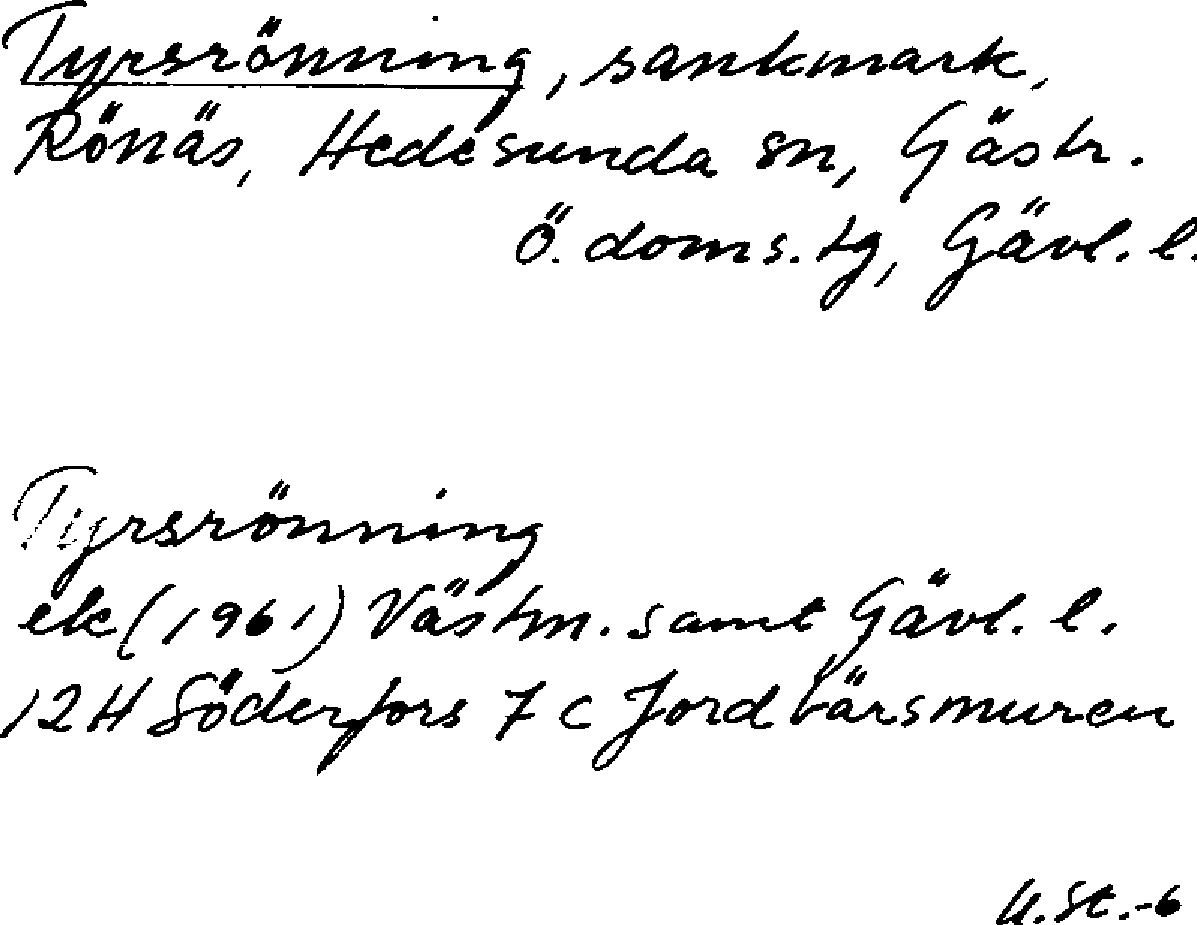 Tyrsrönning, sankmark,
Rönäs, Hedesunda sn, Gästr.
Ö. doms.tg, Gävl. l.
Tyrsrönning
ek (1961) Västm. samt Gävl. l.
12H Söderfors 7 c Jordbärsmuren
U.St.-6